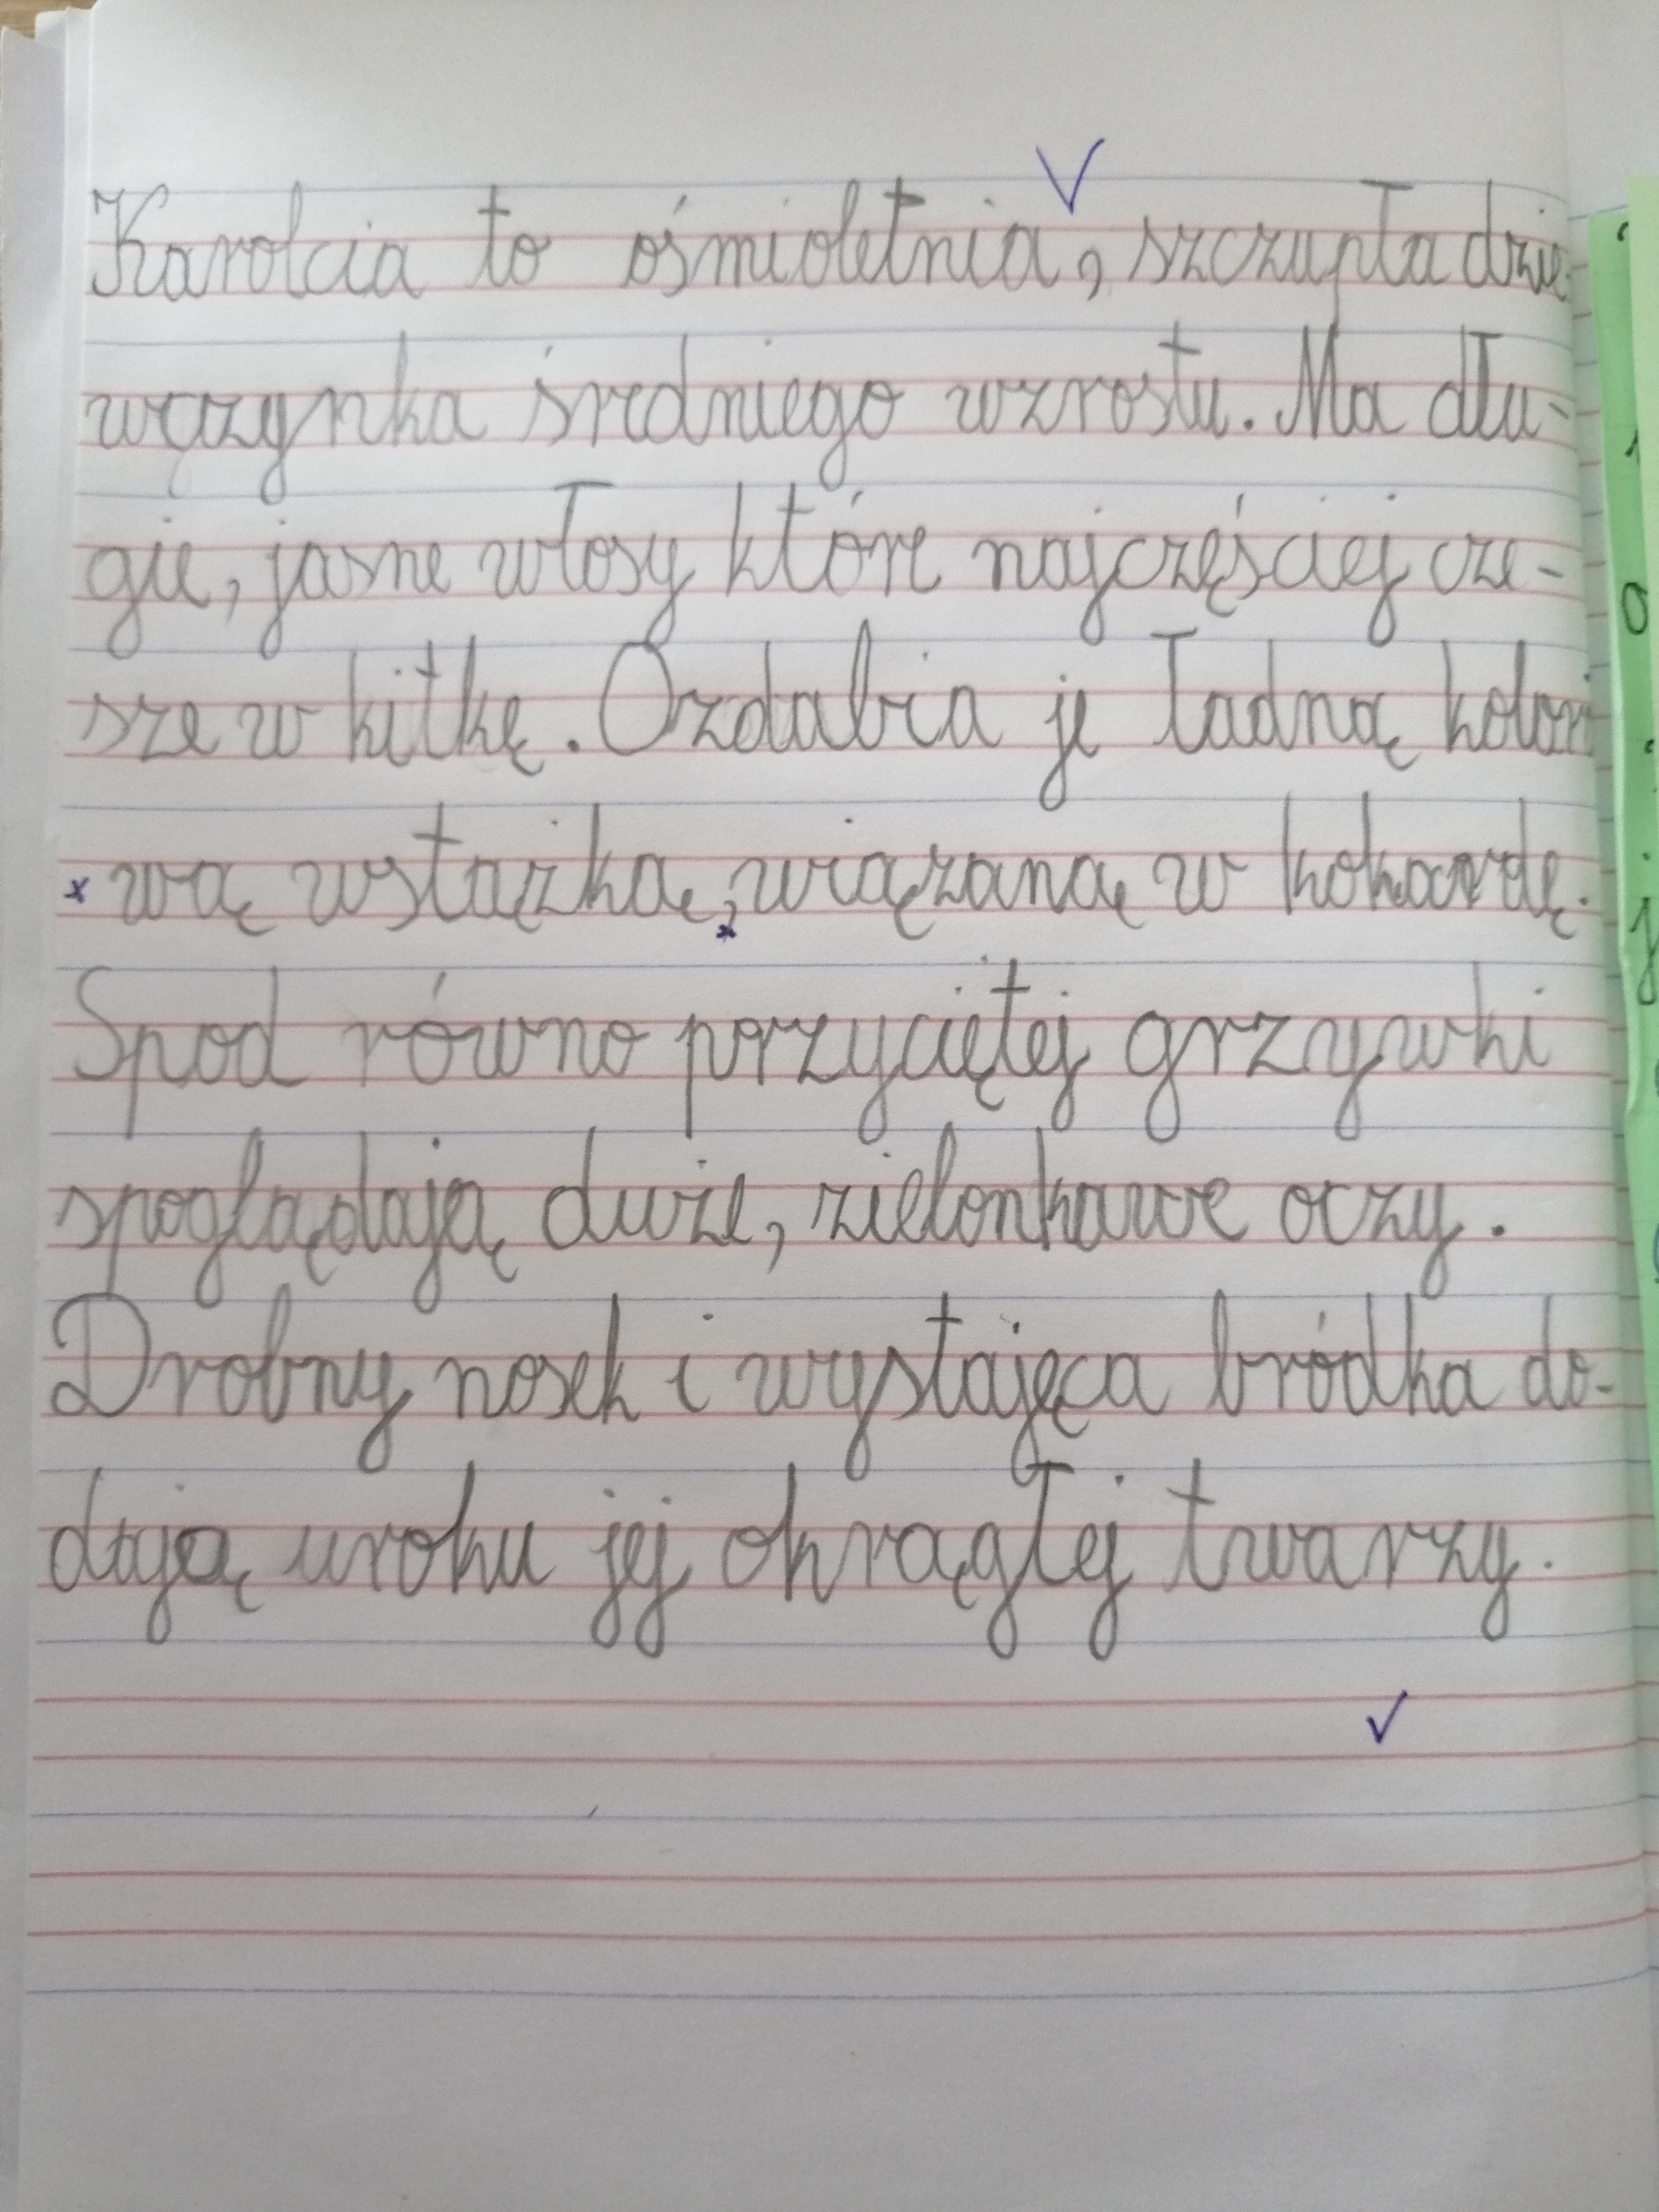 Karolcia to ośmioletnia, szczupła dzie-
wczynka średniego wzrostu. Ma dłu-
gie, jasne włosy które najczęściej cze-
sze w kitkę. Ozdabia je ładną kolori
wą wstążką, wiązaną w kokardę.
Spod równo przyciętej grzywki
spoglądają duże, zielonkawe oczy.
Drobny nosek i wystająca bródka do-
dają uroku jej okrągłej twarzy.